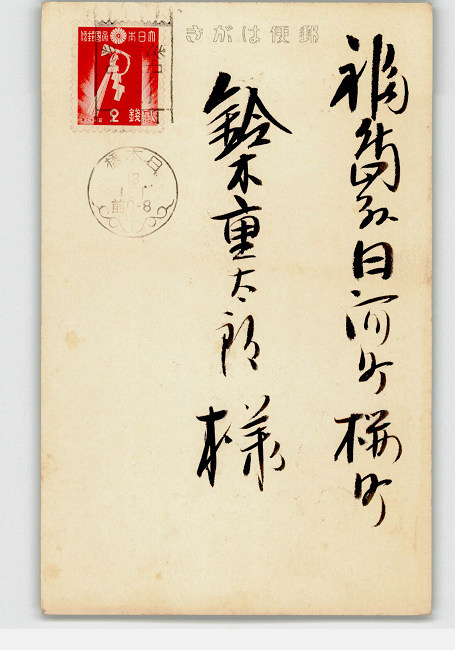 きがは便郵
福島県白河町桜町
鈴木重太郎様
大日本帝國郵便
2 錢
日本橋
13
1.1
前0-8